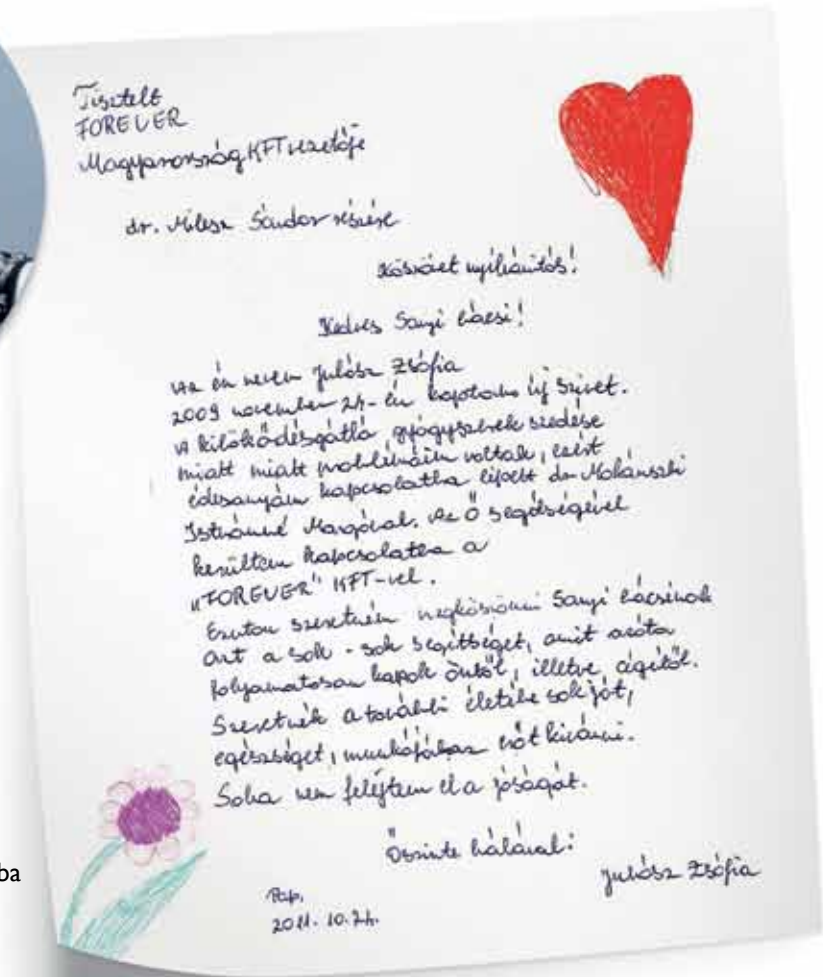 Tisztelt
FOREVER
Magyarország KFT vezetője
dr. Milesz Sándor részére
Köszönet nyílvánítás!
Kedves Sanyi bácsi!
Az én nevem Juhász Zsófia
2009 november 24-én kaptam új szivet.
A kilökődésgátló gyógyszerek szedése
miatt miatt problémáim voltak, ezért
édesanyám kapcsolatba lépett dr. Mohánszki
Istvánné Margóval. Az Ő segítségével
kerültem kapcsolatba a
"FOREVER" KFT-vel.
Ezúton szeretném megköszönni Sanyi bácsinak
azt a sok - sok segítséget, amit azóta
folyamatosan kapok öntől, illetve cégétől.
Szeretnék a további életébe sok jót,
egészséget, munkájában erőt kívánni.
Soha nem felejtem el a jóságát.
Őszinte hálával:
Juhász Zsófia
Pap,
2011. 10.24.
ba